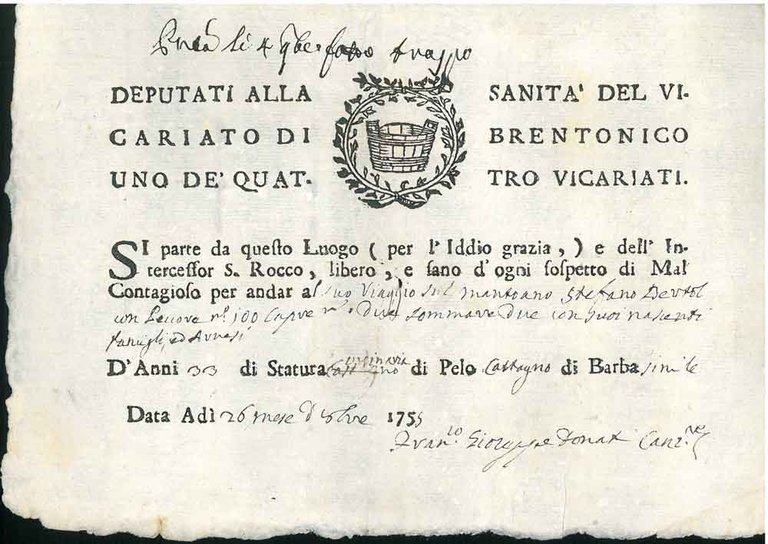 li 4
DEPUTATI ALLA SANITA' DEL VI-
CARIATO DI BRENTONICO
UNO DE' QUAT- TRO VICARIATI.
SI parte da questo Luogo ( per l' Iddio grazia, ) e dell' In-
tercessor S. Rocco, libero, e sano d'ogni sospetto di Mal
Contagioso per andar al suo Viaggio sul mantoano Stefano Bertol
con Pecore n.º 100 Capre dieci sommare due con suoi nascenti
famigli, ed Arnesi
D'Anni 33 di Statura ordinaria di Pelo Castagno di Barba simile
Data Adì 26 mese d 8bre 1755
Fran.co Gioseppe Donati Canz.re